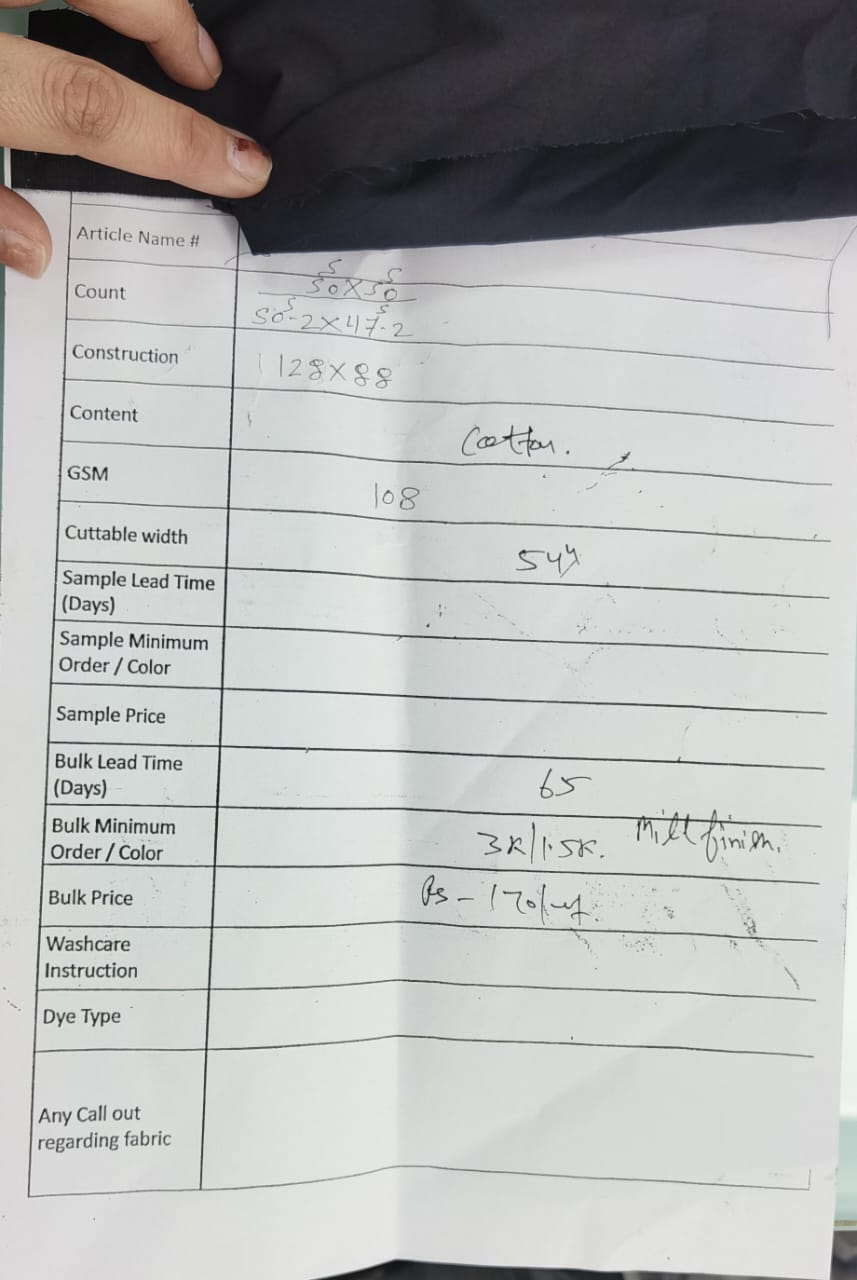 Article Name #
Count
50s X 50s
50s.2 X 47s.2
Construction
128X88
Content
Cotton.
GSM
108
Cuttable width
54"
Sample Lead Time
(Days)
Sample Minimum
Order / Color
Sample Price
Bulk Lead Time
(Days)
65
Bulk Minimum
Order / Color
3K/1.5K. Mill finish.
Bulk Price
Rs - 170/-
Washcare
Instruction
Dye Type
Any Call out
regarding fabric